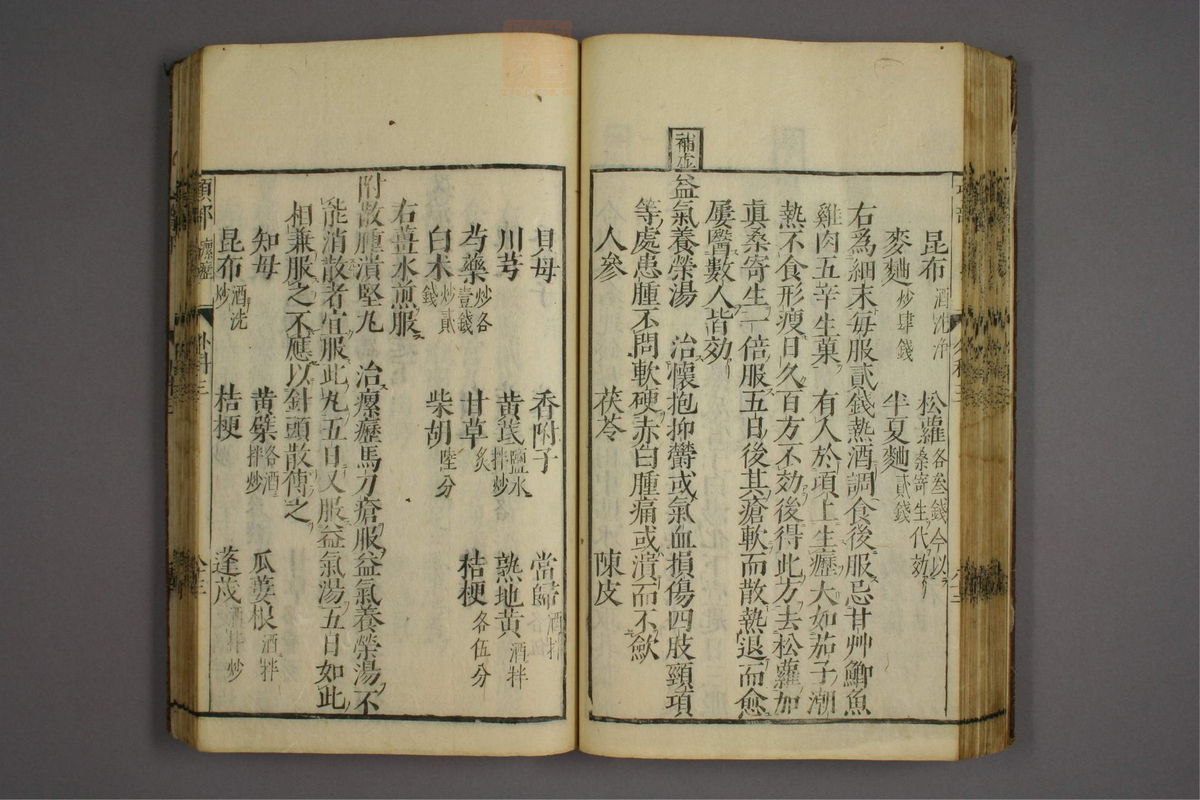 昆布酒洗净 松蘿各叁錢今以桑寄生代効
麥麯炒肆錢 半夏麯貳錢
右爲細末每服貳錢熱酒調食後服忌甘艸鯽魚
雞肉五辛生菓 有人於項上生癧大如茄子潮
熱不食形瘦日久百方不効後得此方去松蘿加
眞桑寄生一倍服五日後其瘡軟而散熱退而愈
屢醫數人皆効
補虛 益氣養榮湯 治懷抱抑欝或氣血損傷四肢頸項
等處患腫不問軟硬赤白腫痛或潰而不歛
人參 茯苓 陳皮
貝母 香附子 當歸酒拌
川芎 黄茋鹽水拌炒 熟地黄酒拌
芍藥炒各壹錢 甘草炙 桔梗各伍分
白朮炒貳錢 柴胡陸分
右薑水煎服
附散腫潰堅丸 治瘰癧馬刀瘡服益氣養榮湯不
能消散者宜服此丸五日又服益氣湯五日如此
相兼服之不應以針頭散傅之
知母 黄蘗各酒拌炒 瓜蔞根酒拌
昆布酒洗炒 桔梗 蓬茂酒拌炒
項部 瘰癧 外科三